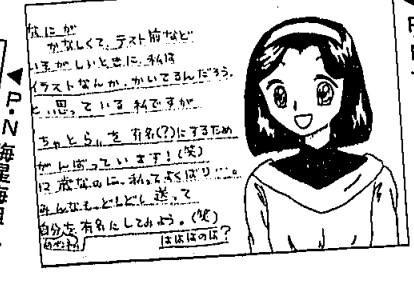 なにが
かなしくて、テスト前など
いそがしいときに、私は
イラストなんか、かいてるんだろう。
と思っている私ですが
ちゃとら〟を有名(?)にするため
がんばっています!(笑)
12歳なのに、私ってよくばり…。
みんなも、どしどし送って
自分を有名にしてみよう。(笑)
はははのは?
◀P.N海星海月